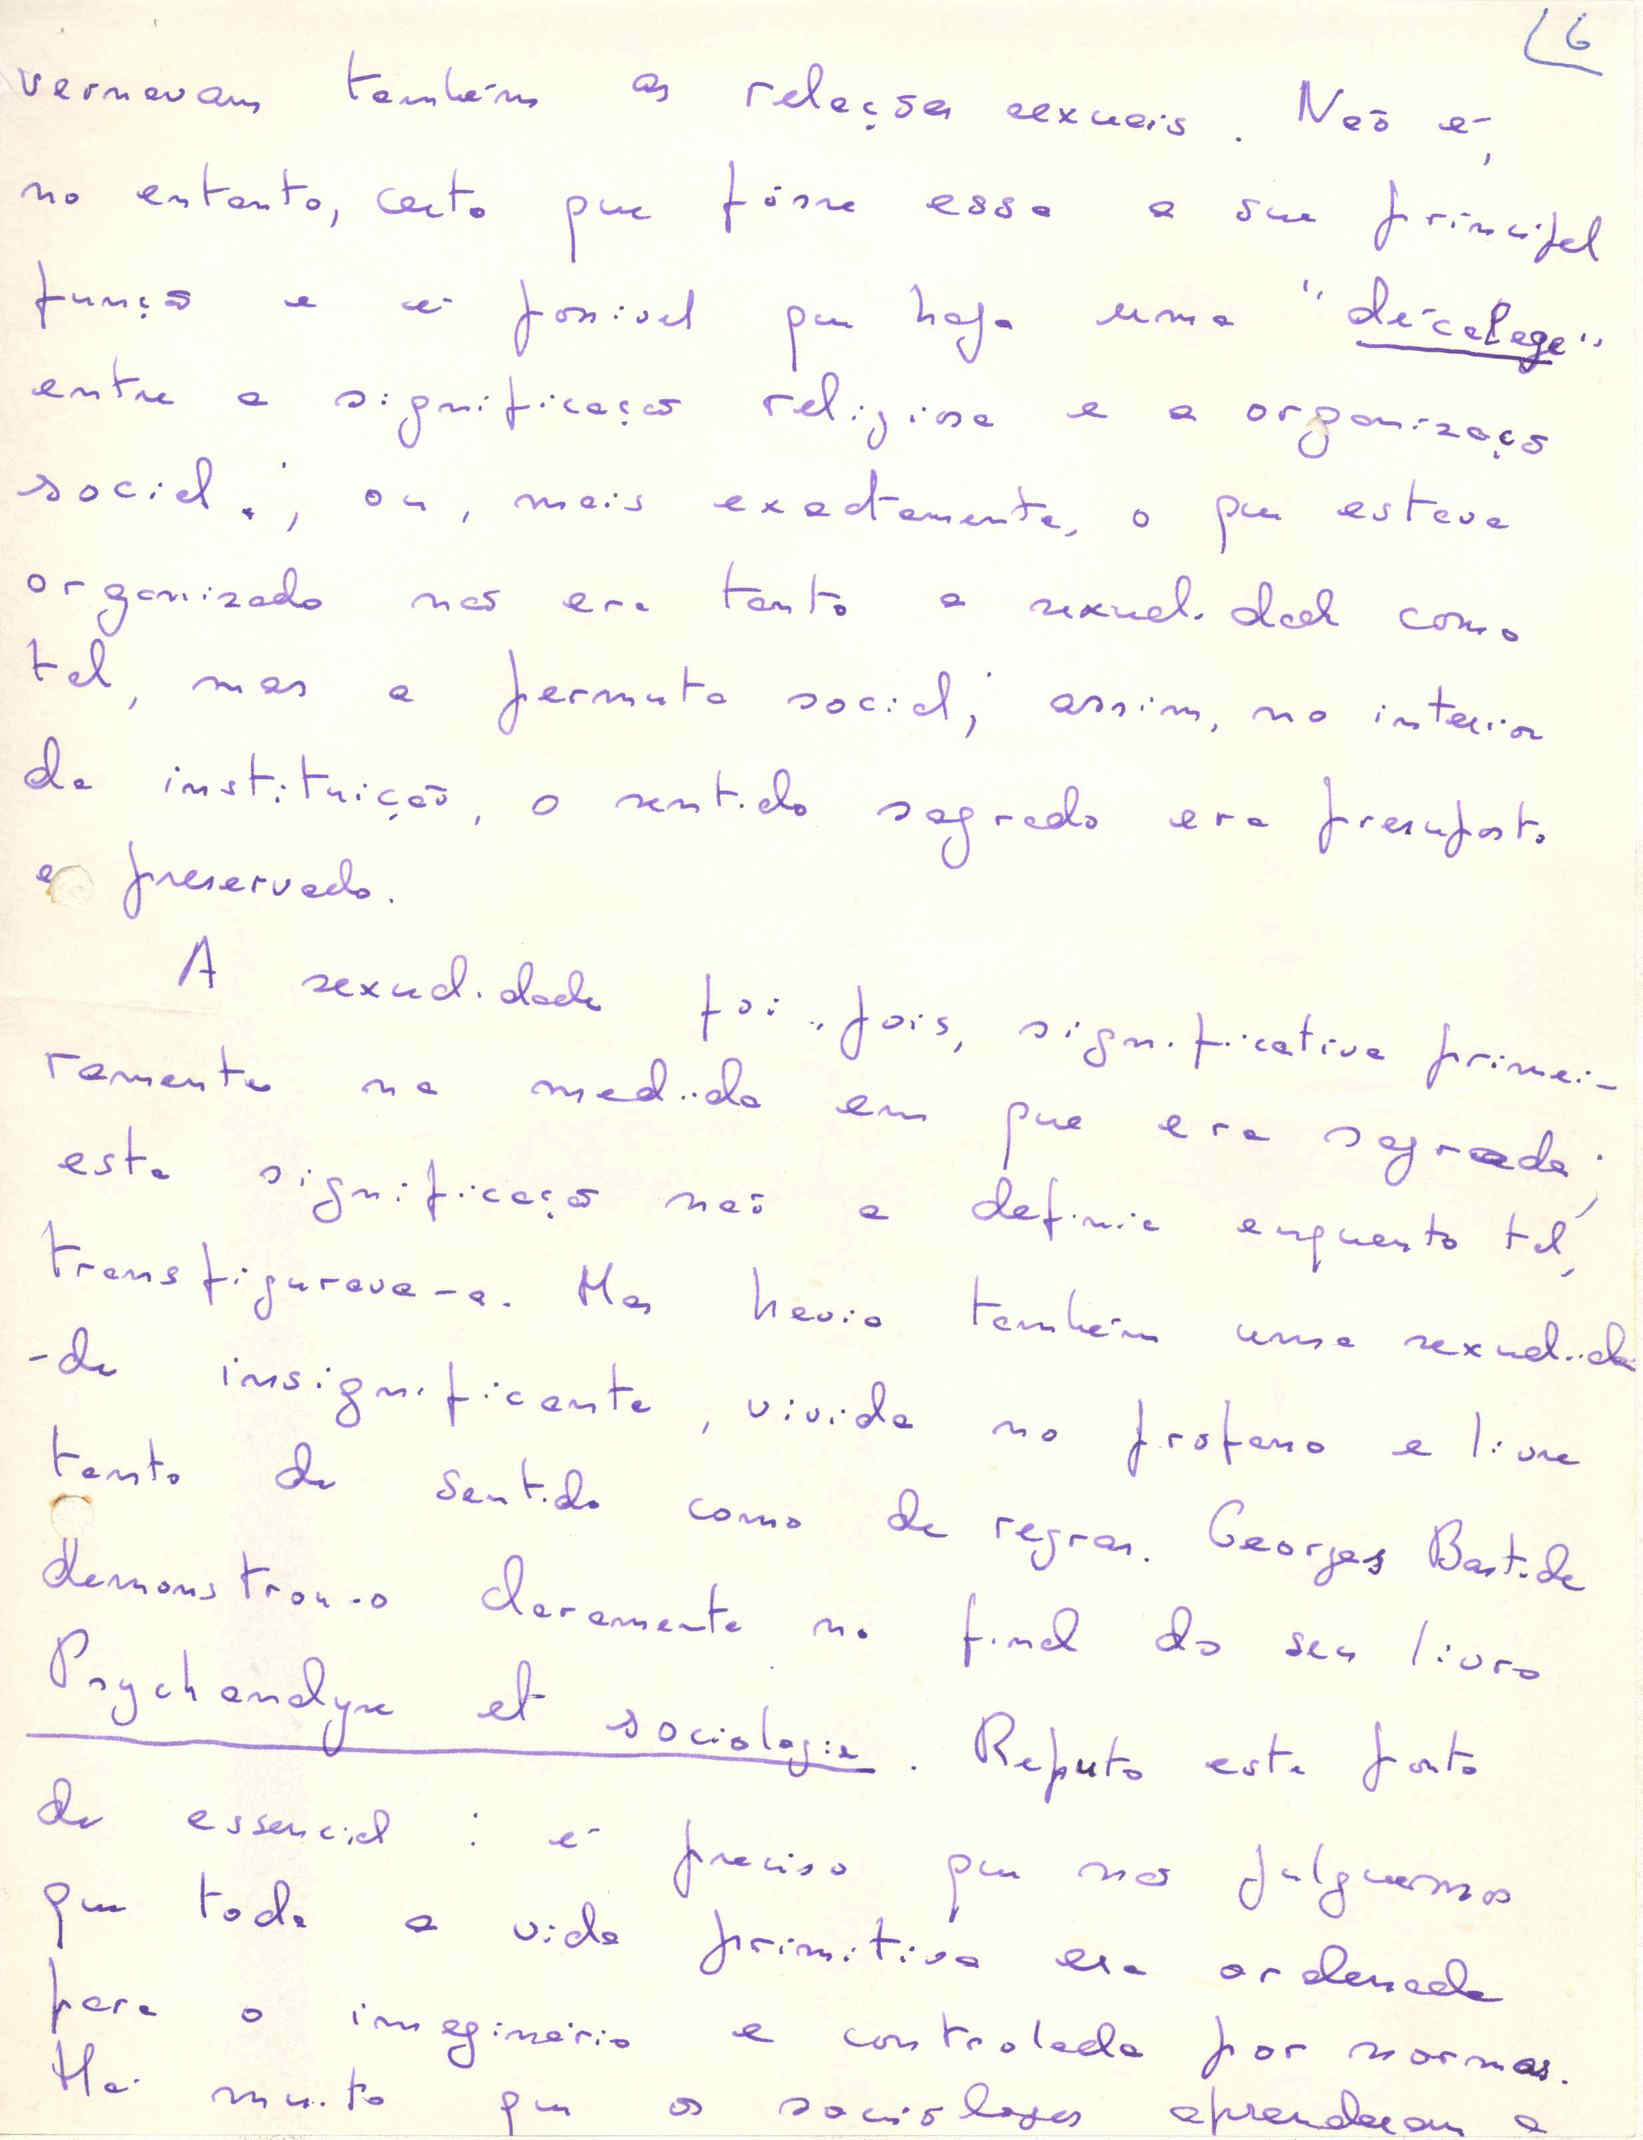 6
vernavam também as relações sexuais. Não é,
no entanto, certo que fôsse essa a sua principal
função e é possivel que haja uma "décalage"
entre a significação religiosa e a organização
social; ou, mais exactamente, o que estava
organizado não era tanto a sexualidade como
tal, mas a permuta social; assim, no interior
da instituição, o sentido sagrado era pressuposto
e preservado.
A sexualidade foi, pois, significativa primei-
ramente na medida em que era sagrada;
esta significação não a definia enquanto tal,
transfigurava-a. Mas havia também uma sexualida
-de insignificante, vivida no profano e livre
tanto de sentido como de regras. Georges Bastide
demonstrou-o claramente no final do seu livro
Psychanalyse et sociologie. Reputo este ponto
de essencial: é preciso que não julguemos
que toda a vida primitiva era ordenada
para o imaginário e controlada por normas.
Há muito que os sociólogos aprenderam a